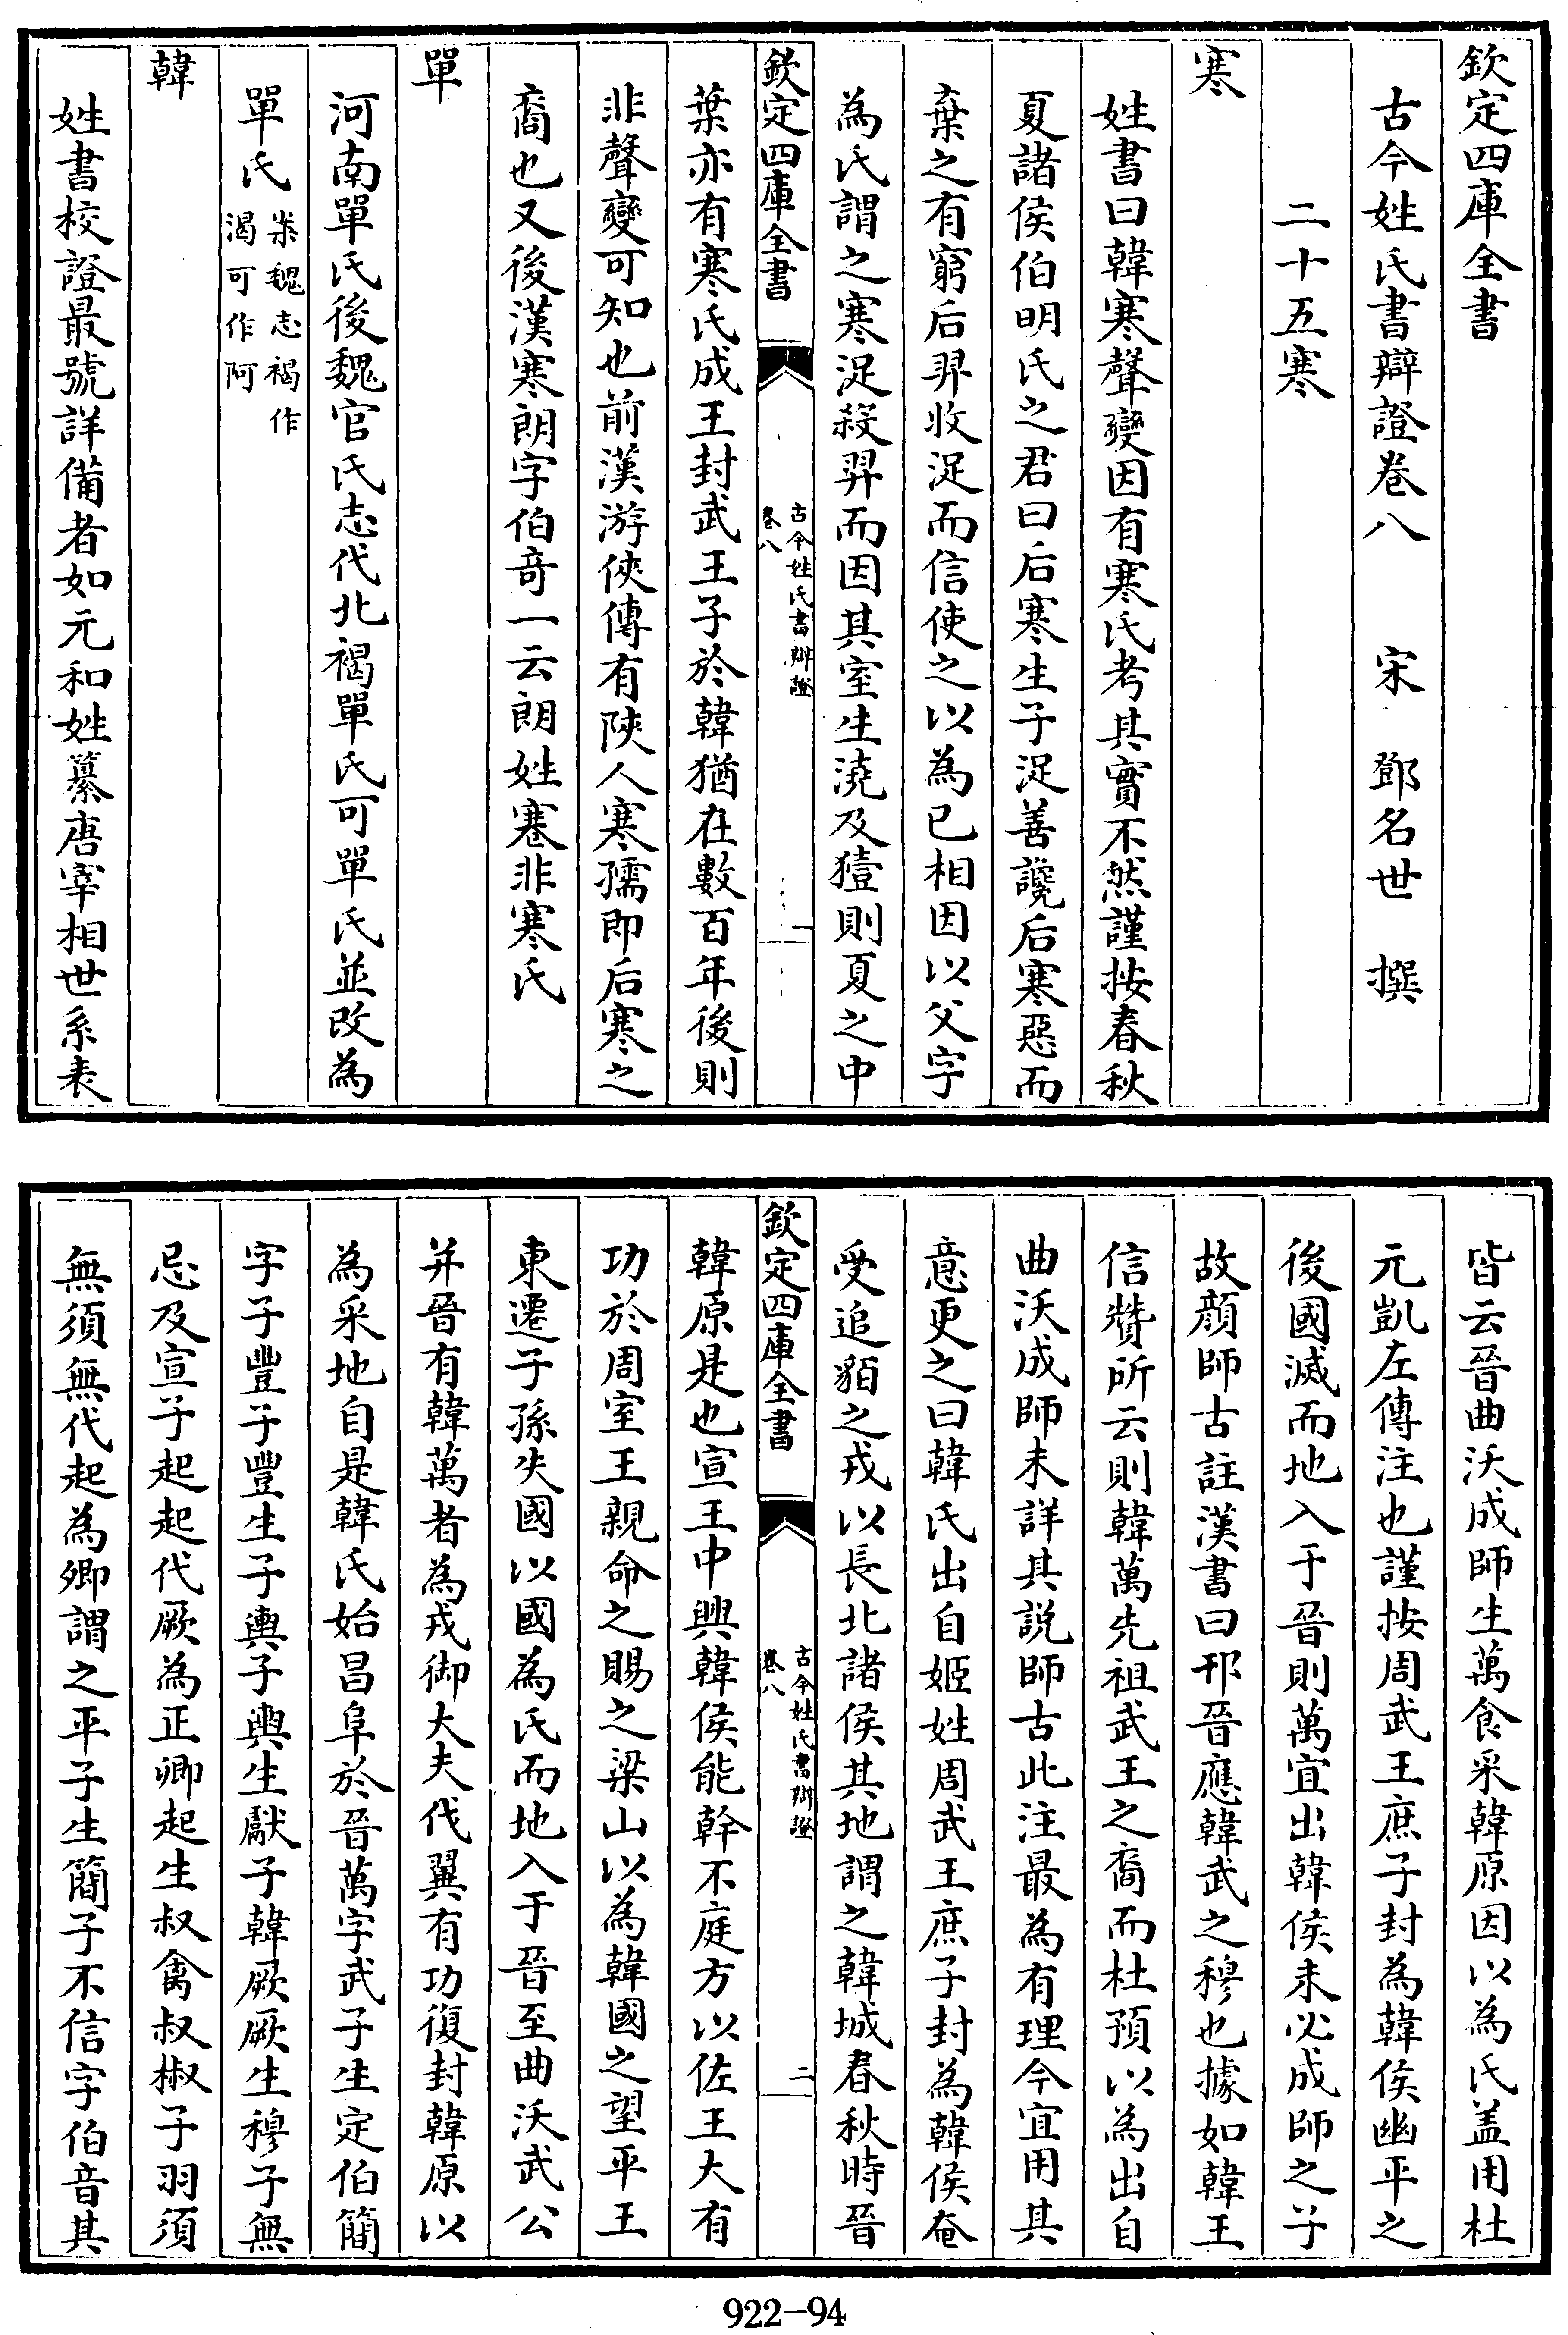 欽定四庫全書
古今姓氏書辯證卷八 宋 鄧名世 撰
二十五寒
寒
姓書曰韓寒聲變因有寒氏考其實不然謹按春秋
夏諸侯伯明氏之君曰后寒生子浞善讒后寒惡而
棄之有窮后羿收浞而信使之以為已相因以父字
為氏謂之寒浞殺羿而因其室生澆及豷則夏之中
欽定四庫全書
古今姓氏書辯證
卷八
一
葉亦有寒氏成王封武王子於韓猶在數百年後則
非聲變可知也前漢游俠傳有陝人寒孺即后寒之
裔也又後漢寒朗字伯奇一云朗姓寋非寒氏
單
河南單氏後魏官氏志代北褐單氏可單氏並改為
單氏
案魏志褐作
渴可作阿
韓
姓書校證最號詳備者如元和姓纂唐宰相世系表
皆云晉曲沃成師生萬食采韓原因以為氏盖用杜
元凱左傳注也謹按周武王庶子封為韓侯幽平之
後國滅而地入于晉則萬宜出韓侯未必成師之子
故顔師古註漢書曰邗晉應韓武之穆也據如韓王
信贊所云則韓萬先祖武王之裔而杜預以為出自
曲沃成師未詳其説師古此注最為有理今宜用其
意更之曰韓氏出自姬姓周武王庶子封為韓侯奄
受追貊之戎以長北諸侯其地謂之韓城春秋時晉
欽定四庫全書
古今姓氏書辯證
卷八
二
韓原是也宣王中興韓侯能幹不庭方以佐王大有
功於周室王親命之賜之梁山以為韓國之望平王
東遷子孫失國以國為氏而地入于晉至曲沃武公
并晉有韓萬者為戎御大夫伐翼有功復封韓原以
為采地自是韓氏始昌阜於晉萬字武子生定伯簡
字子豐子豐生子輿子輿生獻子韓厥厥生穆子無
忌及宣子起起代厥為正卿起生叔禽叔椒子羽須
無須無代起為卿謂之平子生簡子不信字伯音其
922-94